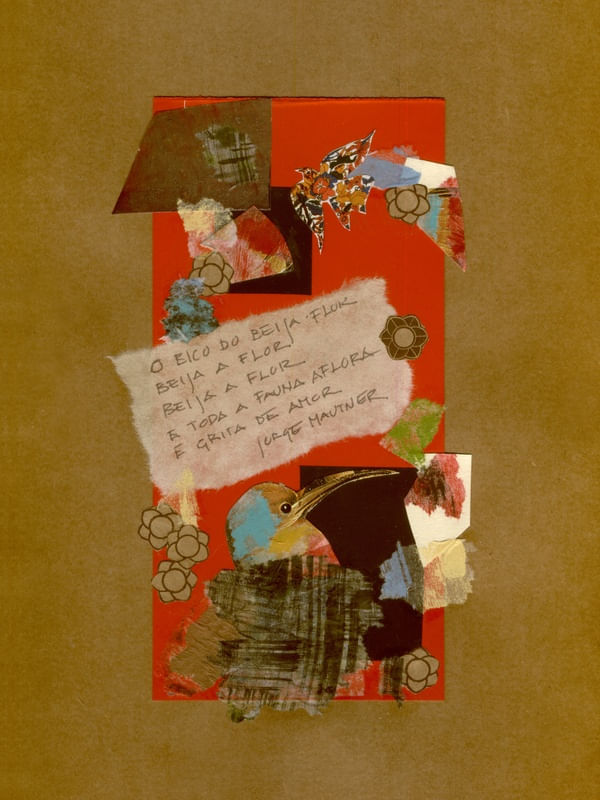 O BICO DO BEIJA-FLOR
BEIJA A FLOR
BEIJA A FLOR
E TODA A FAUNA AFLORA
E GRITA DE AMOR
JORGE MAUTNER